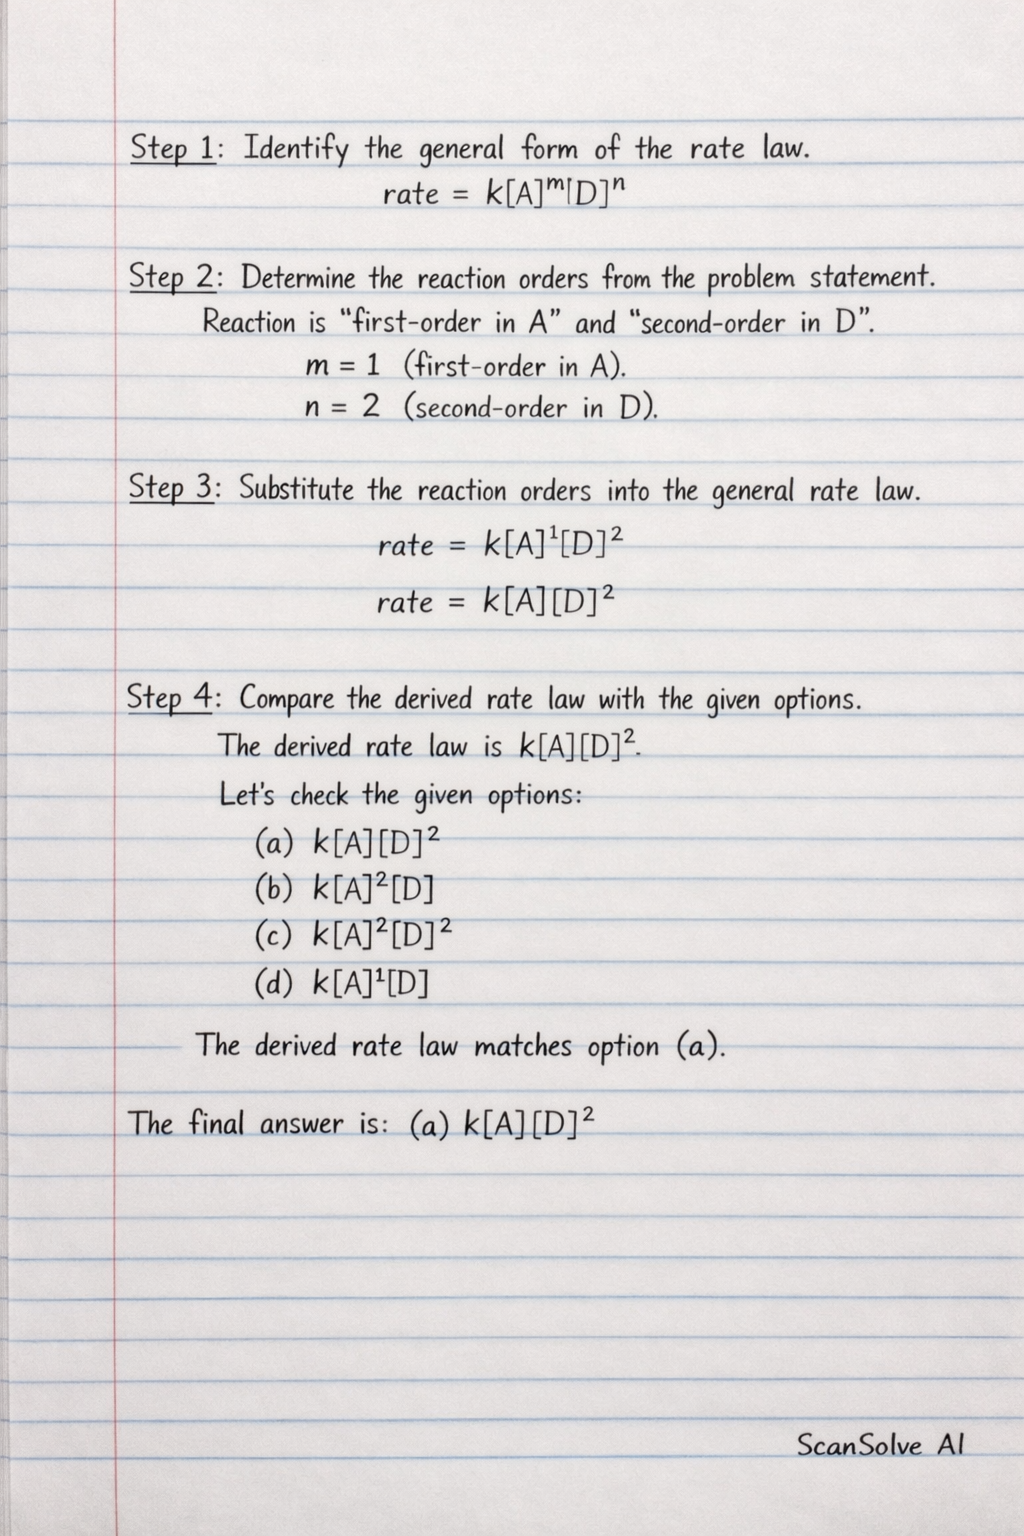 Step 1: Identify the general form of the rate law.
rate = k[A]ᵐ[D]ⁿ
Step 2: Determine the reaction orders from the problem statement.
Reaction is “first-order in A” and “second-order in D”.
m = 1 (first-order in A).
n = 2 (second-order in D).
Step 3: Substitute the reaction orders into the general rate law.
rate = k[A]¹[D]²
rate = k[A][D]²
Step 4: Compare the derived rate law with the given options.
The derived rate law is k[A][D]².
Let's check the given options:
(a) k[A][D]²
(b) k[A]²[D]
(c) k[A]²[D]²
(d) k[A]¹[D]
The derived rate law matches option (a).
The final answer is: (a) k[A][D]²
ScanSolve AI